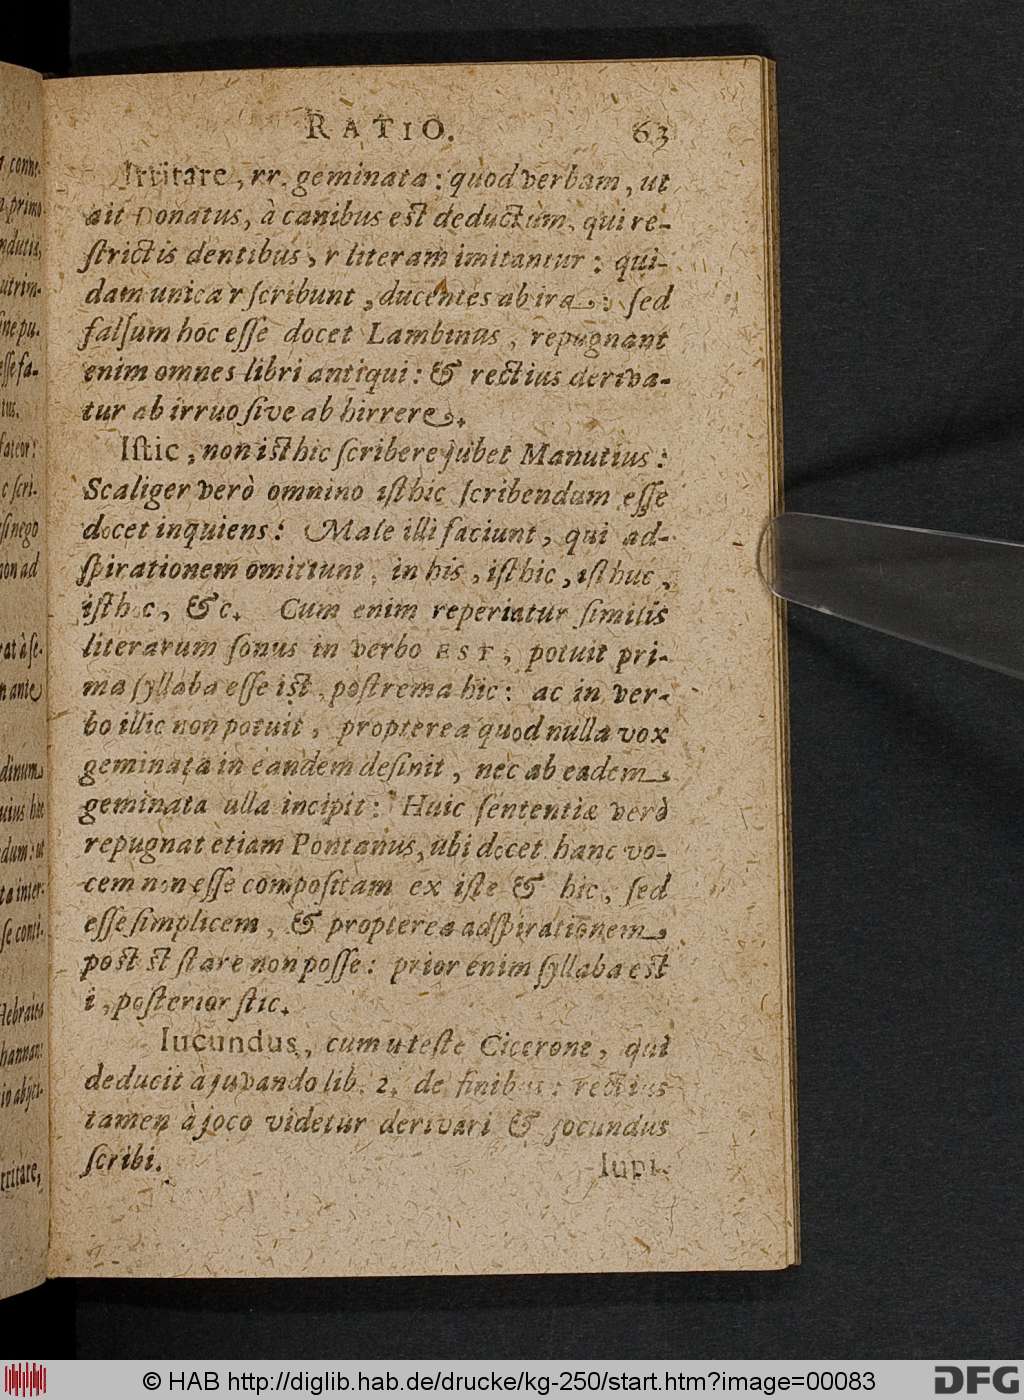 RATIO. 63
Irritare, rr. geminata: quod verbum, ut
ait Donatus, à canibus est deductum, qui re-
strictis dentibus, r literam imitantur: qui-
dam unica r scribunt, ducentes ab ira: sed
falsum hoc esse docet Lambinus, repugnant
enim omnes libri antiqui: & rectius deriva-
tur ab irruo sive ab hirrere.
Istic, non isthic scribere jubet Manutius:
Scaliger verò omnino isthic scribendum esse
docet inquiens: Male illi faciunt, qui ad-
spirationem omittunt, in his, isthic, isthuc,
isthoc, &c. Cum enim reperiatur similis
literarum sonus in verbo EST, potuit pri-
ma syllaba esse ist, postrema hic: ac in ver-
bo illic non potuit, propterea quod nulla vox
geminata in eandem desinit, nec ab eadem
geminata ulla incipit: Huic sententiæ verò
repugnat etiam Pontanus, ubi docet hanc vo-
cem non esse compositam ex iste & hic, sed
esse simplicem, & propterea adspirationem
post st stare non posse: prior enim syllaba est
i, posterior stic.
Iucundus, cum u teste Cicerone, qui
deducit à juvando lib. 2. de finibus: rectius
tamen à joco videtur derivari & jocundus
scribi.
Iupi-
conne-
primo
nduti,
utrin-
sine pu-
esse fa-
tus.
fateor:
c scri-
nego
non ad
rat à se-
n ante
dinum
uius hic
dum: ut
ta inter-
se conti-
Hebraica
hannan:
in abijci-
rritare,
© HAB http://diglib.hab.de/drucke/kg-250/start.htm?image=00083
DFG